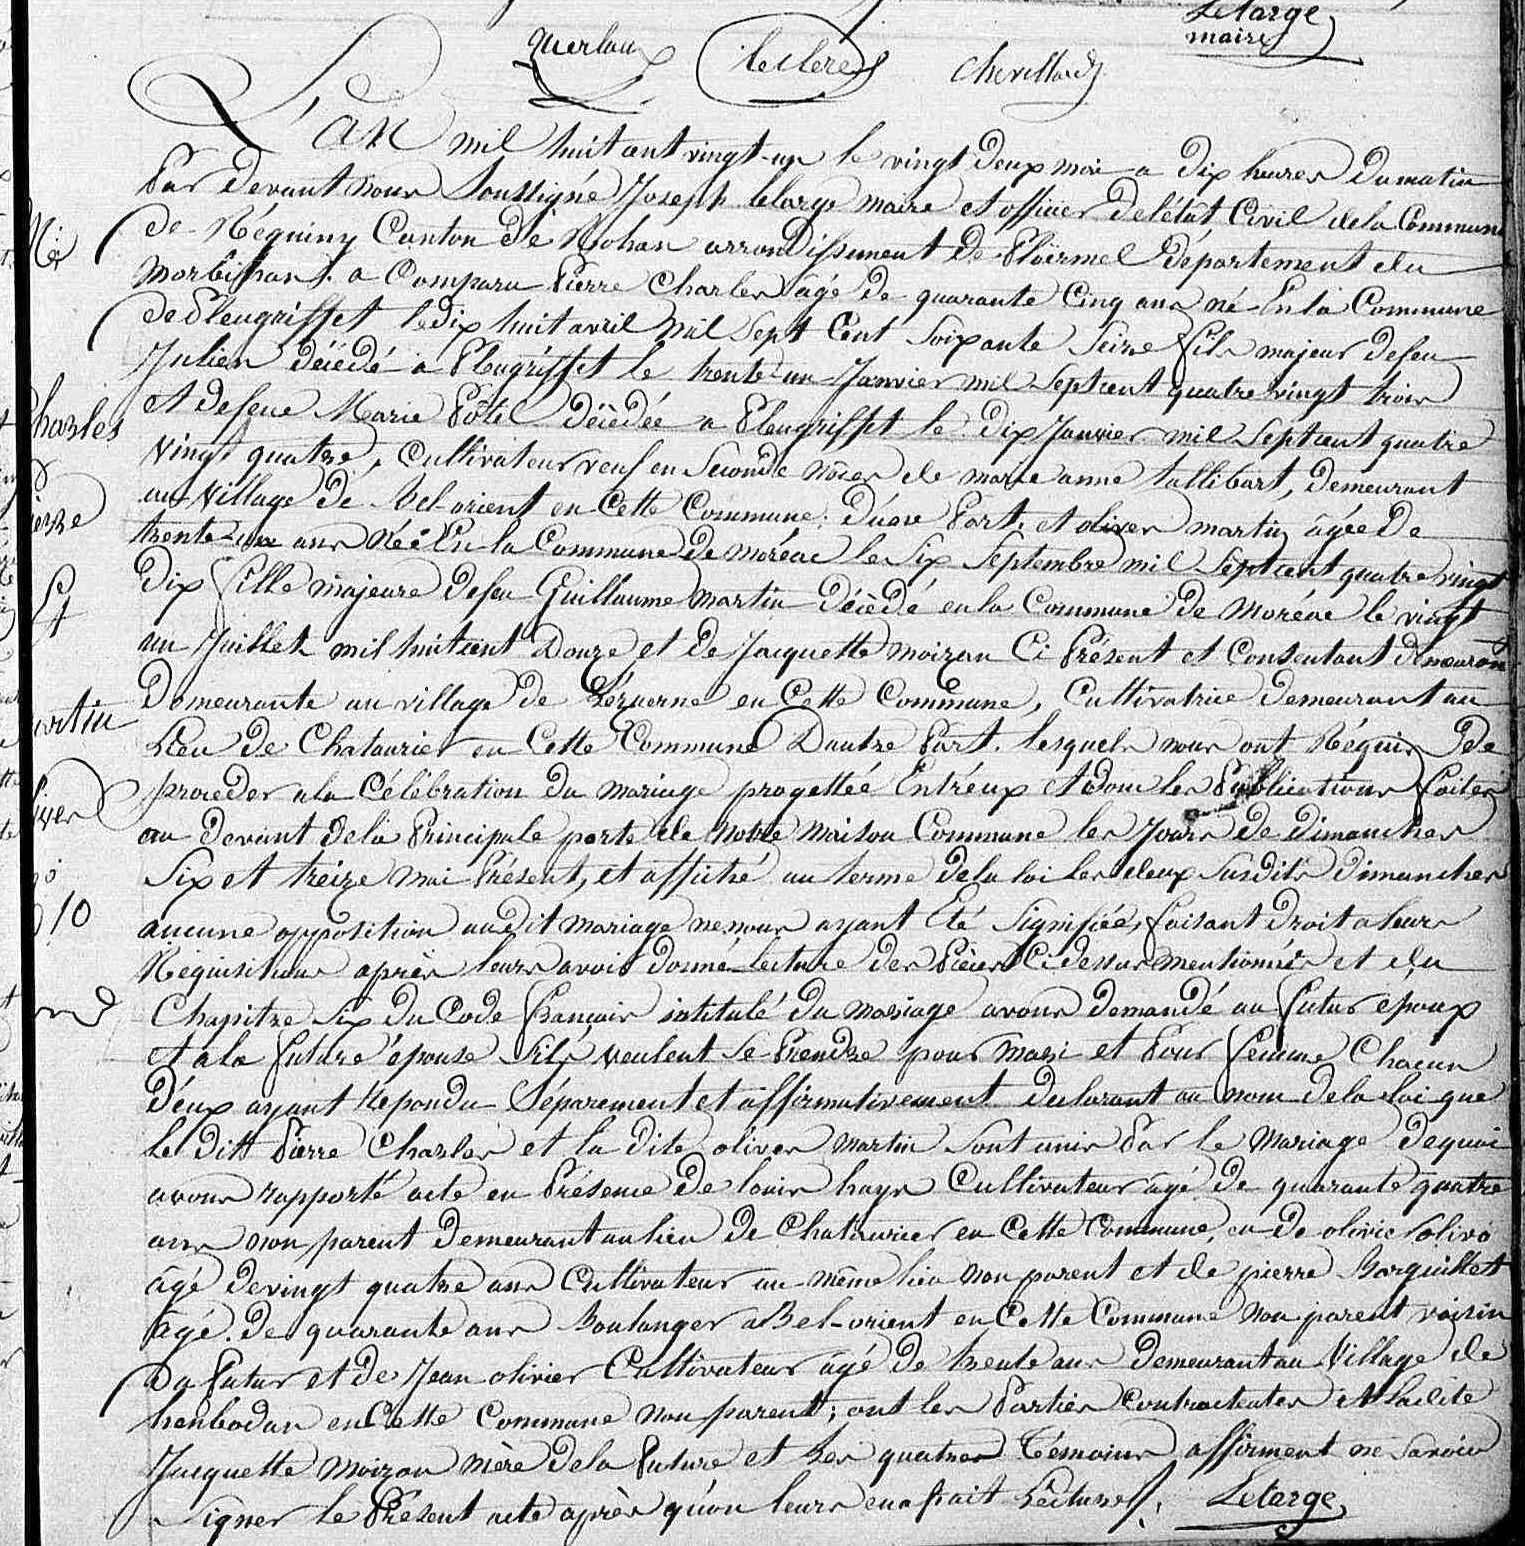 Letarge
maire
querlau Leclere Chevillard
L'an mil huit cent vingt-un le vingt deux mai a dix heures du matin
Par devant nous Soussigné Joseph letarge maire et officier de l'état Civil de la Commune
de Réguiny Canton de Rohan arrondissement de Ploërmel département du
Morbihan. a Comparu Pierre Charles âgé de quarante Cinq ans né En la Commune
de Pleugriffet le dix huit avril mil Sept Cent Soixante Seize fils majeur de feu
Julien décédé a Pleugriffet le trente-un Janvier mil Sept cent quatre vingt trois
et de feue Marie Pôtel décédée a Pleugriffet le dix Janvier mil Sept cent quatre
Vingt quatre, Cultivateur veuf en Seconde noces de marie anne tallibart, demeurant
au Village de Bel-orient en Cette Commune; d'une Part, et oliver martin âgée de
trente-un ans Née En la Commune de moréac le Six Septembre mil Sept cent quatre vingt
Dix fille majeure de feu Guillaume martin décédé en la Commune de Moréac le vingt
un Juillet mil huit cent Douze et de Jacquette moizan Ci Présent et Consentant demeurant
Demeurante au village de en Cette Commune, Cultivatrice demeurant au
Lieu de Chataurier en Cette Commune D'autre Part. lesquels nous ont Réquis de
procéder a la Célébration du mariage progettée Entr'eux et dont les Publications faites
au devant de la Principale porte de Notre maison Commune les Jours de dimanches
Six et treize mai Présent, et affiché au terme de la loi les deux Susdits dimanches
aucune opposition au dit mariage ne nous ayant Eté Signifiée, faisant Droit a leurs
Réquisitions après leurs avoir donné lecture des Pièces Ci dessus mentionnées et du
Chapitre Six du Code français intitulé du mariage avons demandé au futur epoux
et a la future épouse S'ils veulent Se Prendre pour mari et Pour femme Chacun
d'eux ayant Repondu Séparement et affirmativement declarant au nom de la loi que
Le ditt Pierre Charles et la dite oliver martin Sont unis Par le Mariage de quoi
avons rapporté acte en Présence de louis hays Cultivateur âgé de quarante quatre
ans non parent demeurant au lieu de Chataurier en Cette Commune, en de olivic
âgé de vingt quatre ans Cultivateur au même lieu non parent et de pierre Barguillet
âgé de quarante ans Boulanger a Bel-orient en Cette Commune non parent voisin
Du futur et de Jean olivier Cultivateur âgé de trente ans demeurant au Village de
henbodan en Cette Commune non parent; ont les Parties Contractantes et la dite
Jacquette Moizan Mère de la future et Les quatres Témoins affirment ne Savoir
Signer le Présent acte après qu'on leurs en a frait Lecture. Letarge
Nos
Charles
Pierre
Et
Martin
oliver
no
10